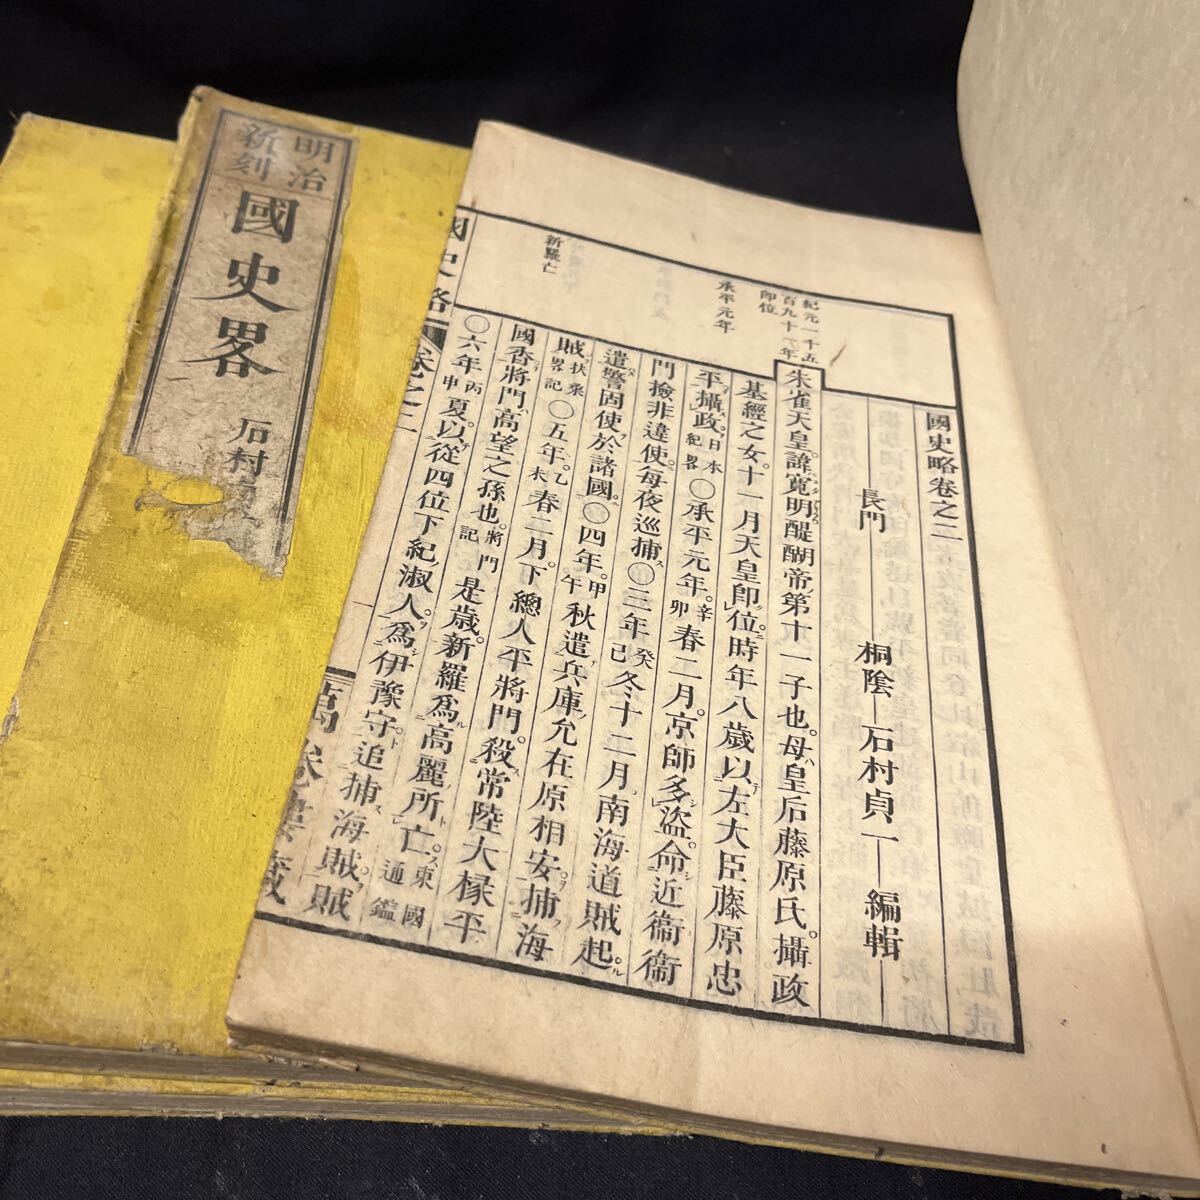 明治
新刻
國史畧
石村貞
國史略卷之二
長門 桐陰 石村貞一 編輯
朱雀天皇諱寛明醍醐帝第十一子也母皇后藤原氏攝政
基經之女十一月天皇卽位時年八歲以左大臣藤原忠
平攝政日本紀畧〇承平元年辛卯春二月京師多盗命近衞衞
門撿非違使每夜巡捕〇三年癸巳冬十二月南海道賊起
遣警固使於諸國〇四年甲午秋遣兵庫允在原相安捕海
賊扶桒畧記〇五年乙未春二月下總人平將門殺常陸大椽平
國香將門高望之孫也將門記是歲新羅爲高麗所亡東國通鑑
〇六年丙申夏以從四位下紀淑人爲伊豫守追捕海賊賊
紀元一千五
百九十一年
卽位
承平元年
新羅亡
國史略
卷之二
一
萬卷樓藏